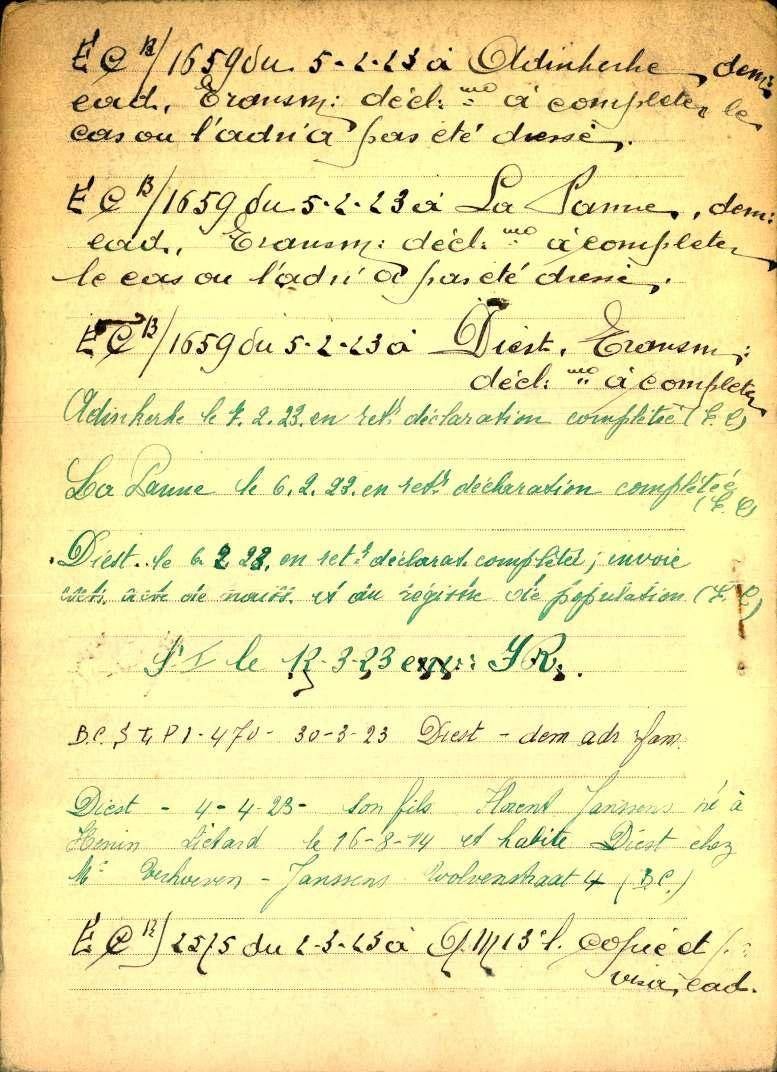 E C B/1659 du 5-2-23 à Adinkerke, dem:
ead. Transm: décl: mo à completer le
cas ou l'adn'a pas été dressé.
E C B/1659 du 5-2-23 à La Panne, dem:
ead. Transm: décl: mo à completer
le cas ou l'adn'a pas été dressé.
E C B/1659 du 5-2-23 à Diest. Transm:
décl: mo à completer
Adinkerke le 7.2.23. en retr déclaration complétée (E.C)
La Panne le 6.2.23. en retr déclaration complétée
(E.C)
Diest. le 6 2 23. en retr déclarat. complétée; envoie
acte de naiss. et du régistre de population (E.C)
le 12-3-23
B.C. 470- 30-3-23 Diest - dem adr fam.
Diest - 4-4-23- son fils Florent Janssens né à
Henin Liétard le 16-8-14 et habite Diest chez
Me Verhoeven - Janssens Wolvenstraat 4 (B.C.)
E C B/2575 du 2-3-23 à copie et
visa, ead.